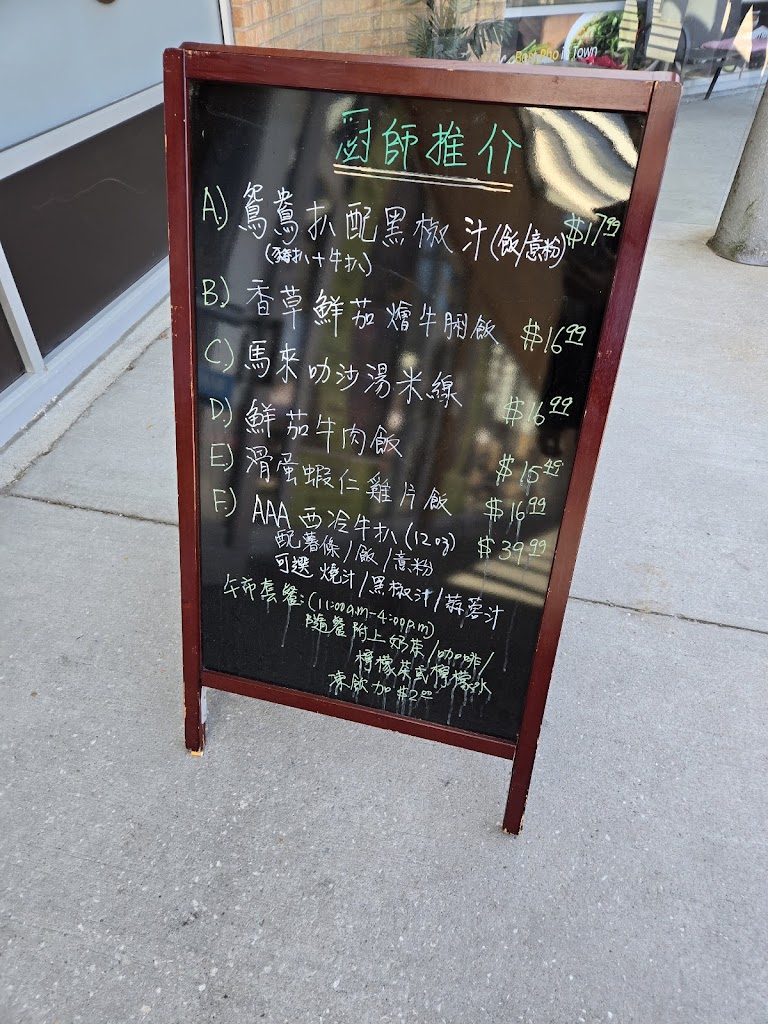 Best Pho in Town
廚師推介
A.) 鴛鴦扒配黑椒汁(飯/意粉) $17.99
(豬扒+牛扒)
B.) 香草鮮茄燴牛脷飯 $16.99
C.) 馬來叻沙湯米線 $16.99
D.) 鮮茄牛肉飯 $15.49
E.) 滑蛋蝦仁雞片飯 $16.99
F.) AAA西冷牛扒(12oz) $39.99
配薯條/飯/意粉
可選燒汁/黑椒汁/蒜蓉汁
午市套餐:(11:00a.m-4:00p.m)
隨餐附上奶茶/咖啡/
檸檬茶或檸檬水
凍飲加$2.00